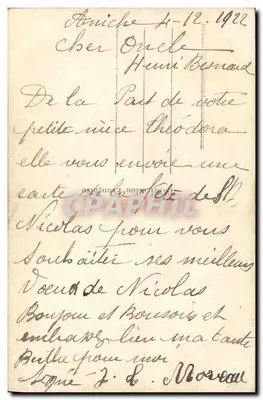 Aniche 4-12-1922
Cher Oncle
Henri Besnard
De la Part de votre
petite nièce théodora
elle vous envoie une
carte la fête de St
Nicolas pour vous
souhaiter ses meilleurs
Voeux de Nicolas
Bonjour et Bonsoir et
embrassez bien ma tante
Berthe pour moi
signé J. L. Moreau
CPAPHIL